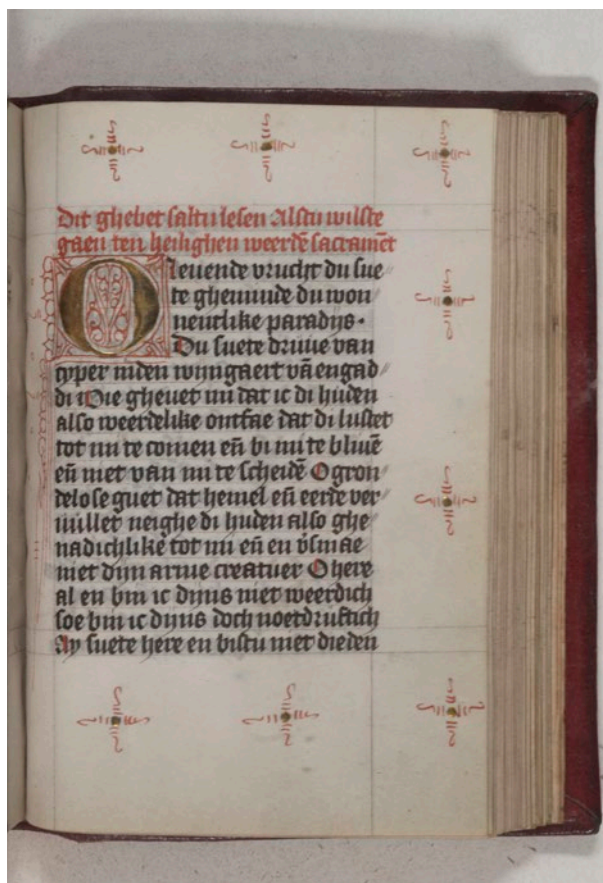 Dit ghebet saltu lesen Alstu wilste
gaen ten heilighen weerdē sacramēt
O leuende vrucht du sue
te ghemmide du won
nentlike paradys.
Du suete druue van
cyper inden wyngaert vā engad
di Die gheuet mi dat ic di huden
also weerdelike ontfae dat di lustet
tot mi te comen eñ bi mi te bliuē
eñ niet van mi te scheidē O gron
delose guet dat hemel eñ eerde ver
uullet neighe di huden also ghe
nadichlike tot mi eñ en v̄smae
niet dijn arme creatuer O here
al en bin ic dijns niet weerdich
soe bin ic dijns doch noetdruftich
Ay suete here en bistu niet die den